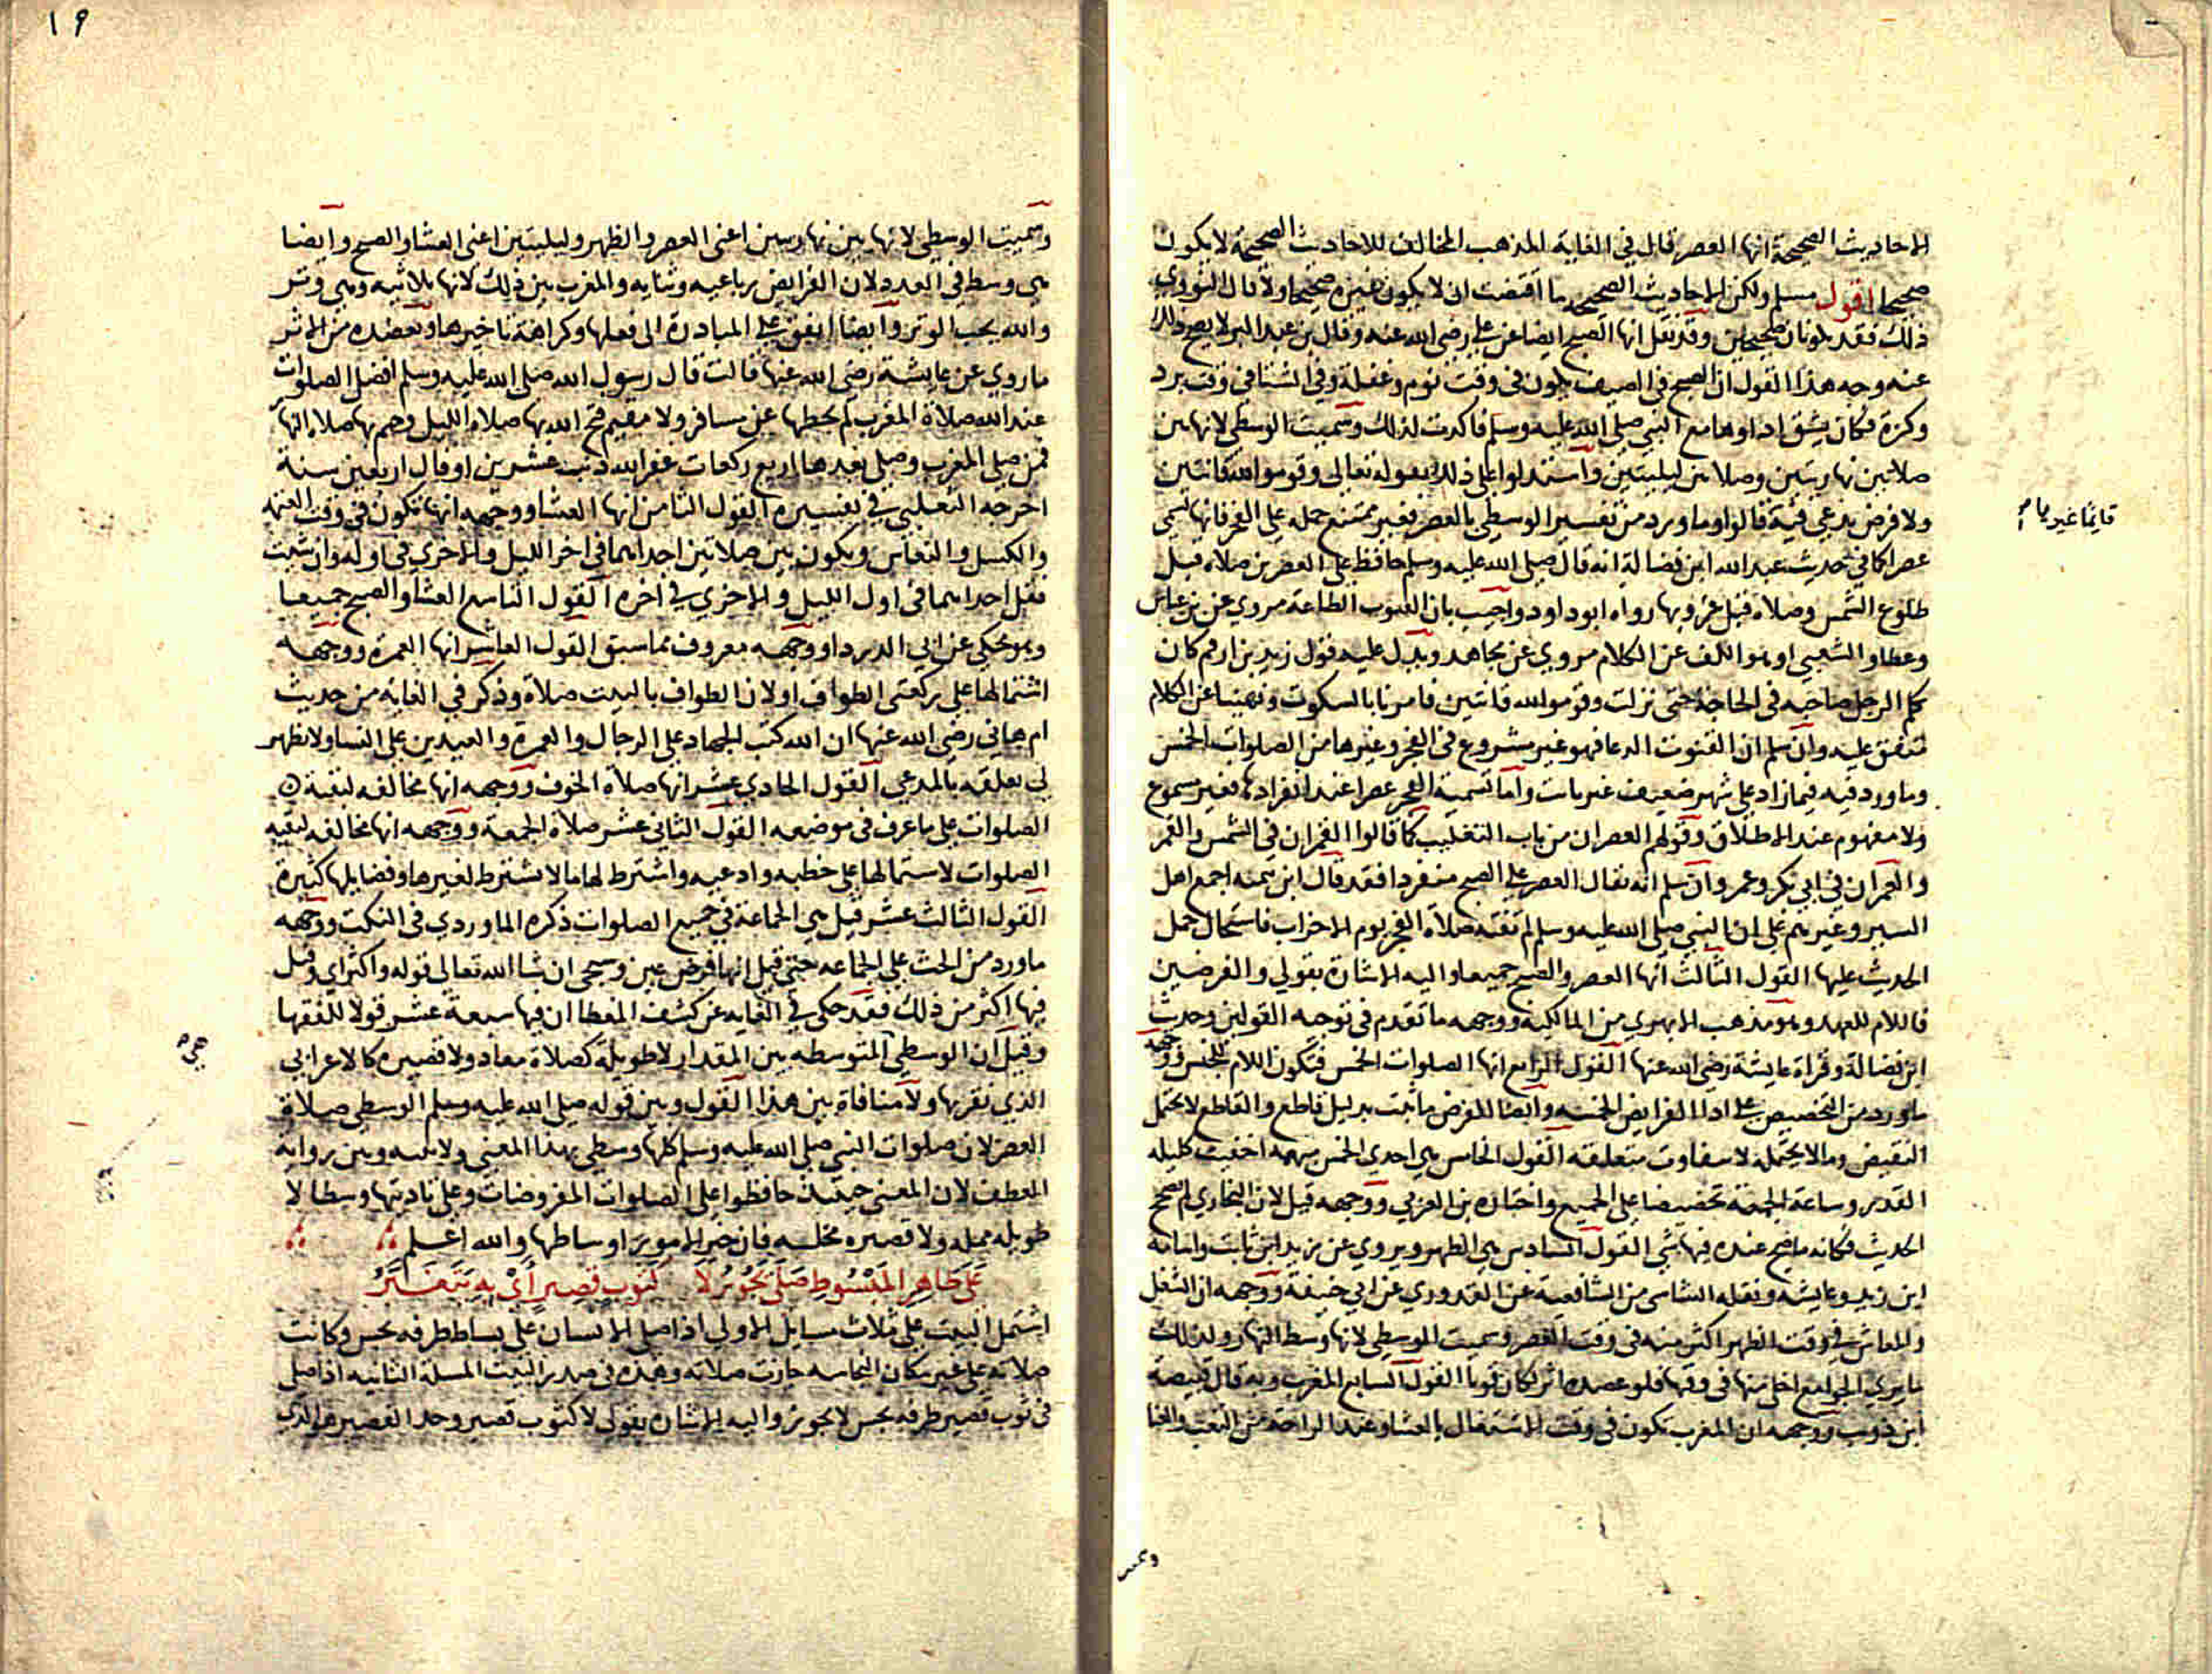 الاحاديث الصحيحة انها العصر قال في الغاية المذهب المخالف للاحاديث الصحيحة لا يكون
صحيحا اقول مسلم ولكن الاحاديث الصحيحة ما اقتضت ان لا يكون غيره صحيحا ولا قال النووي
ذلك فقد يكونان صحيحين وقد نقل انها الصبح ايضا عن علي رضي الله عنه وقال بن عبد البر لا يصح ذلك
عنه وجه هذا القول ان الصبح في الصيف يكون في وقت نوم وغفلة وفي الشتا في وقت برد
وكزة فكان يشق اداوها مع النبي صلى الله عليه وسلم فاكدت لذلك وسميت الوسطى لانها بين
صلاتين نهاريتين وصلاتين ليليتين واستدلوا على ذلك بقوله تعالى وقوموا لله قانتين
ولا فرض يدعى فيه قالوا وما ورد من تفسير الوسطى بالعصر فغير ممتنع حمله على الفجر فانها تسمى
عصرا كما في حديث عبد الله ابن فضالة انه قال صلى الله عليه وسلم حافظ على العصرين صلاة قبل
طلوع الشمس وصلاة قبل غروبها رواه ابو داود واجيب بان القنوت الطاعة مروي عن بن عباس
وعطاو الشعبي او هو الكف عن الكلام مروي عن مجاهد ويدل عليه قول زيد بن ارقم كان
يكلم الرجل صاحبه في الحاجة حتى نزلت وقوموا لله قانتين فامرنا بالسكوت ونهينا عن الكلام
متفق عليه وان سلم ان القنوت الدعا فهو غير مشروع في الفجر وغيرها من الصلوات الخمس
وما ورد فيه فيما زاد على شهر ضعيف غير ثابت واما تسمية الفجر عصرا عند انفرادها فغير مسموع
ولا مفهوم عند الاطلاق وقولهم العصران من باب التغليب كما قالوا القمران في الشمس والقمر
والعمران في ابي بكر وعمر وان سلم انه يقال العصر على الصبح منفردا فقد قال ابن تيميه اجمع اهل
السير وغيرهم على ان النبي صلى الله عليه وسلم لم تفته صلاة الفجر يوم الاحزاب فاستحال حمل
الحديث عليها القول الثالث انها العصر والصبح جميعا واليه الاشارة بقولي والفرضين
فاللام للعهد وهو مذهب الابهري من المالكية ووجهه ما تقدم في توجه القولين وحديث
ابن فضالة وقراة عايشة رضي الله عنها القول الرابع انها الصلوات الخمس فتكون اللام للجنس ووجهه
ما ورد من التخصيص على ادا الفرايض الخمسه وايضا الفرض ما ثبت بدليل قاطع والقاطع لا يحتمل
النقيض وما لا يحتمله لا تتفاوت متعلقته القول الخامس هي احدى الخمس مبهمة اخفيت كليله
القدر وساعة الجمعة تحضيضا على الجميع واختاره بن العربي ووجهه قيل لان البخاري لم يصحح
الحديث فكانه ما صح عنده فيها شي القول السادس هي الظهر ويروى عن زيد ابن ثابت واسامة
ابن زيد وعايشه ونقله الشاسي من الشافعية عن القدوري عن ابي حنيفة ووجهه ان الشغل
والمعاش في وقت الظهر اكثر منه في وقت العصر وسميت الوسطى لانها وسط النهار ولذلك
ما يرى الجوامع اخلى منها في وقتها فلو عضده اثر لكان قويا القول السابع المغرب وبه قال قبيصة
ابن ذويب ووجهه ان المغرب تكون في وقت الاشتغال بالعشا وعند الراحة من التعب والعنا
قايما غير نيام
١٩
وسميت الوسطى لانها بين نهاريتين اعني العصر والظهر وليليتين اعني العشا والصبح وايضا
هي وسط في العدد لان الفرايض رباعيه وثنايه والمغرب بين ذلك لانها ثلاثيه وهي وتر
والله يحب الوتر وايضا اتفق على المبادرة الى فعلها وكراهة تاخيرها ويعضده من الاثر
ما روي عن عايشة رضي الله عنها قالت قال رسول الله صلى الله عليه وسلم افضل الصلوات
عند الله صلاة المغرب لم يحطها عن مسافر ولا مقيم فتح الله بها صلاة الليل وختم بها صلاة النهار
فمن صلى المغرب وصلى بعدها اربع ركعات غفر الله ذنب عشرين او قال اربعين سنة
اخرجه الثعلبي في تفسيره القول الثامن انها العشا ووجهه انها تكون في وقت العتمة
والكسل والنعاس ويكون بين صلاتين احداهما في اخر الليل والاخرى في اوله وان شيت
فقل احداهما في اول الليل والاخرى في اخره القول التاسع العشا والصبح جميعا
وهو محكي عن ابي الدردا ووجهه معروف مما سبق القول العاشر انها العمرة ووجهه
اشتمالها على ركعتي الطواف او لان الطواف بالبيت صلاة وذكر في الغاية من حديث
ام هاني رضي الله عنها ان الله كتب الجهاد على الرجال والعمرة والعيدين على النسا ولا يظهر
لي تعلقه بالمدعى القول الحادي عشر انها صلاة الخوف ووجهه انها مخالفه لبقية
الصلوات على ما عرف في موضعه القول الثاني عشر صلاة الجمعة ووجهه انها مخالفه لبقيه
الصلوات لاشتمالها على خطبه وادعيه واشترط لها ما لا يشترط لغيرها وفضايلها كثيرة
القول الثالث عشر قيل هي الجماعة في جميع الصلوات ذكره الماوردي في النكت ووجهه
ما ورد من الحث على الجماعه حتى قيل انها فرض عين وسيجي ان شا الله تعالى قوله واكثر اي وقيل
فيها اكثر من ذلك فقد حكى في الغايه عن كشف المغطا ان فيها سبعة عشر قولا للفقها
وقيل ان الوسطى المتوسطه بين المقدار لا طويلة كصلاة معاد ولا قصيره كالاعرابي
الذي نقرها ولا منافاة بين هذا القول وبين قوله صلى الله عليه وسلم الوسطى صلاة
العصر لان صلوات النبي صلى الله عليه وسلم كلها وسطى بهذا المعنى ولا بينه وبين رواية
العطف لان المعنى حينئذ حافظوا على الصلوات المفروضات وعلى تاديتها وسطا لا
طويله ممله ولا قصيره مخله فان خير الامور اوساطها والله اعلم
عَلَى طَاهِرِ المَبْسُوطِ صَلَّى يَجُوزُ لَا كَثَوْبٍ قَصِيرٍ
اشتمل البيت على ثلاث مسايل الاولى اذا صلى الانسان على بساط طرفه نجس وكانت
صلاته على غير مكان النجاسه جازت صلاته وهذه في صدر البيت المسلة الثانيه اذا صلى
في ثوب قصير طرفه نجس لا يجوز واليه الاشاره بقولي لا كثوب قصير وحد القصير هو الذي